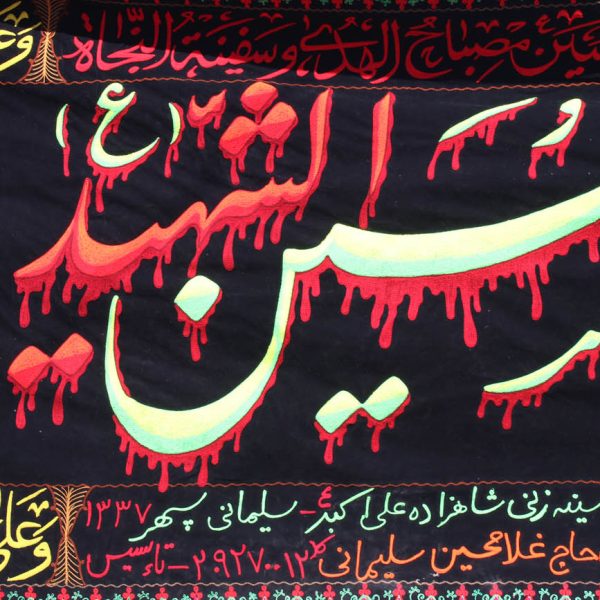 مصباح الهدی و سفینة النجاة
الشهید (ع)
سین
سینه زنی شاهزاده علی اکبر ع - سلیمانی سپهر ۱۳۳۷
حاج غلامحسین سلیمانی
تاسیس